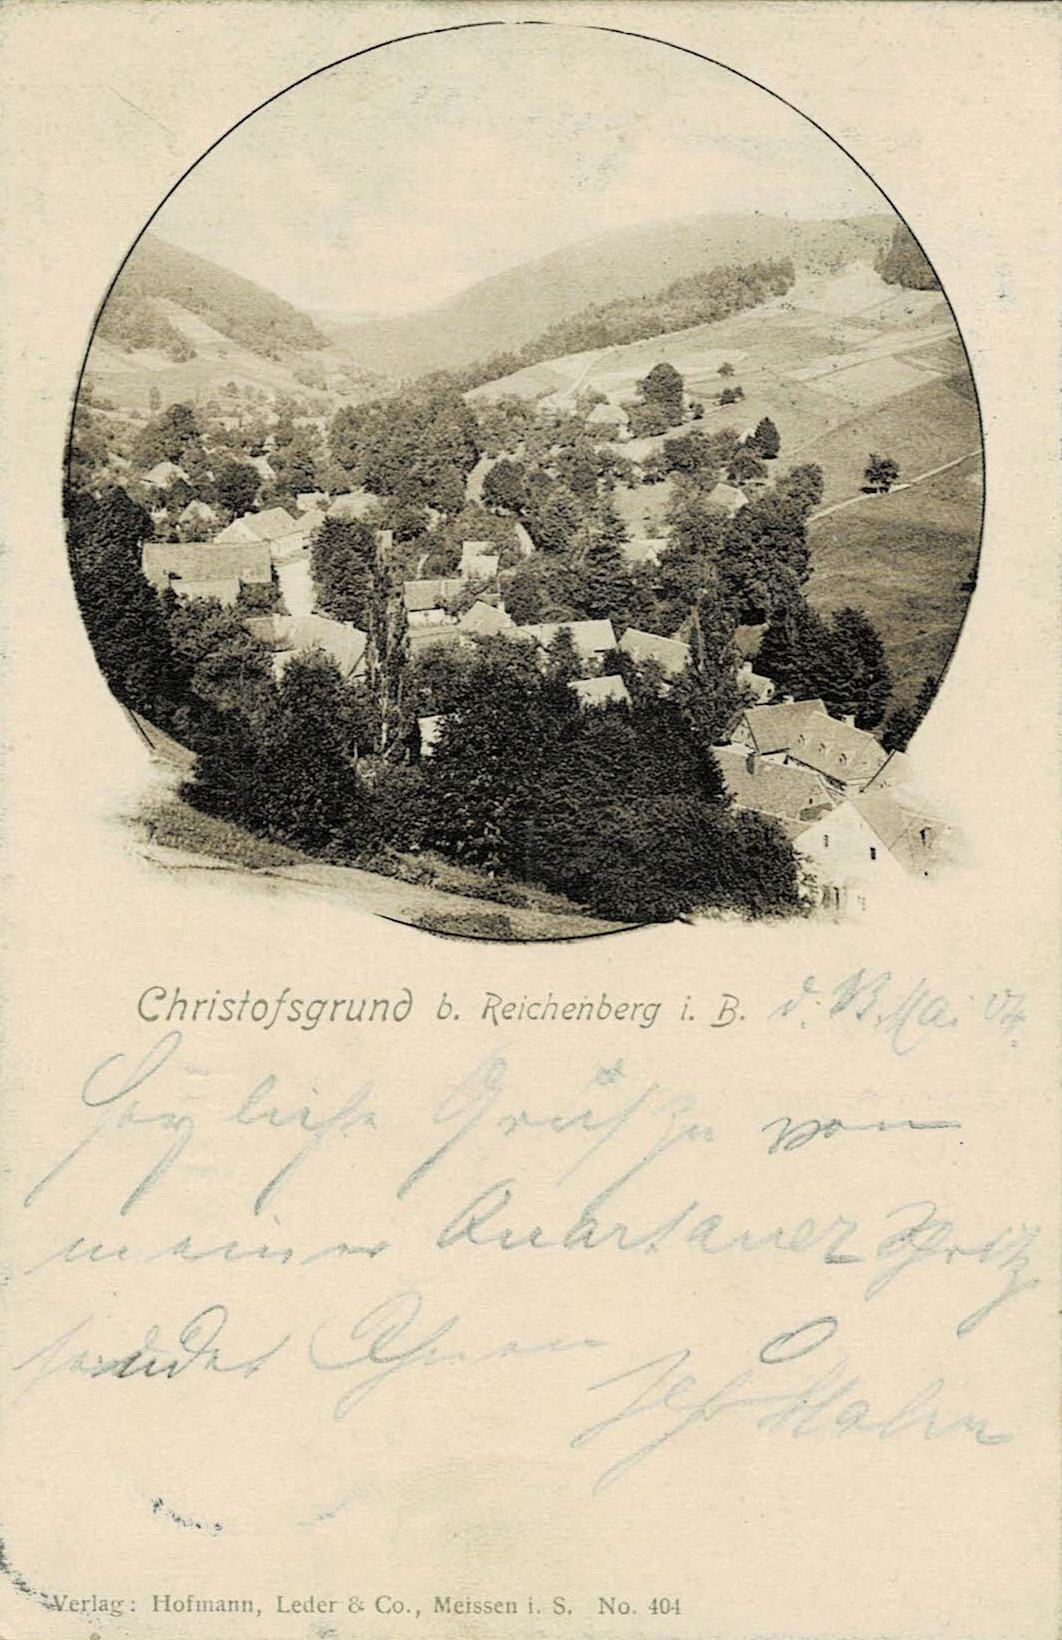 Christofsgrund b. Reichenberg i. B. d. Mai 04.
Herzliche Grüße von
meiner Quartaner
sendet Ihnen
Verlag: Hofmann, Leder & Co., Meissen i. S. No. 404